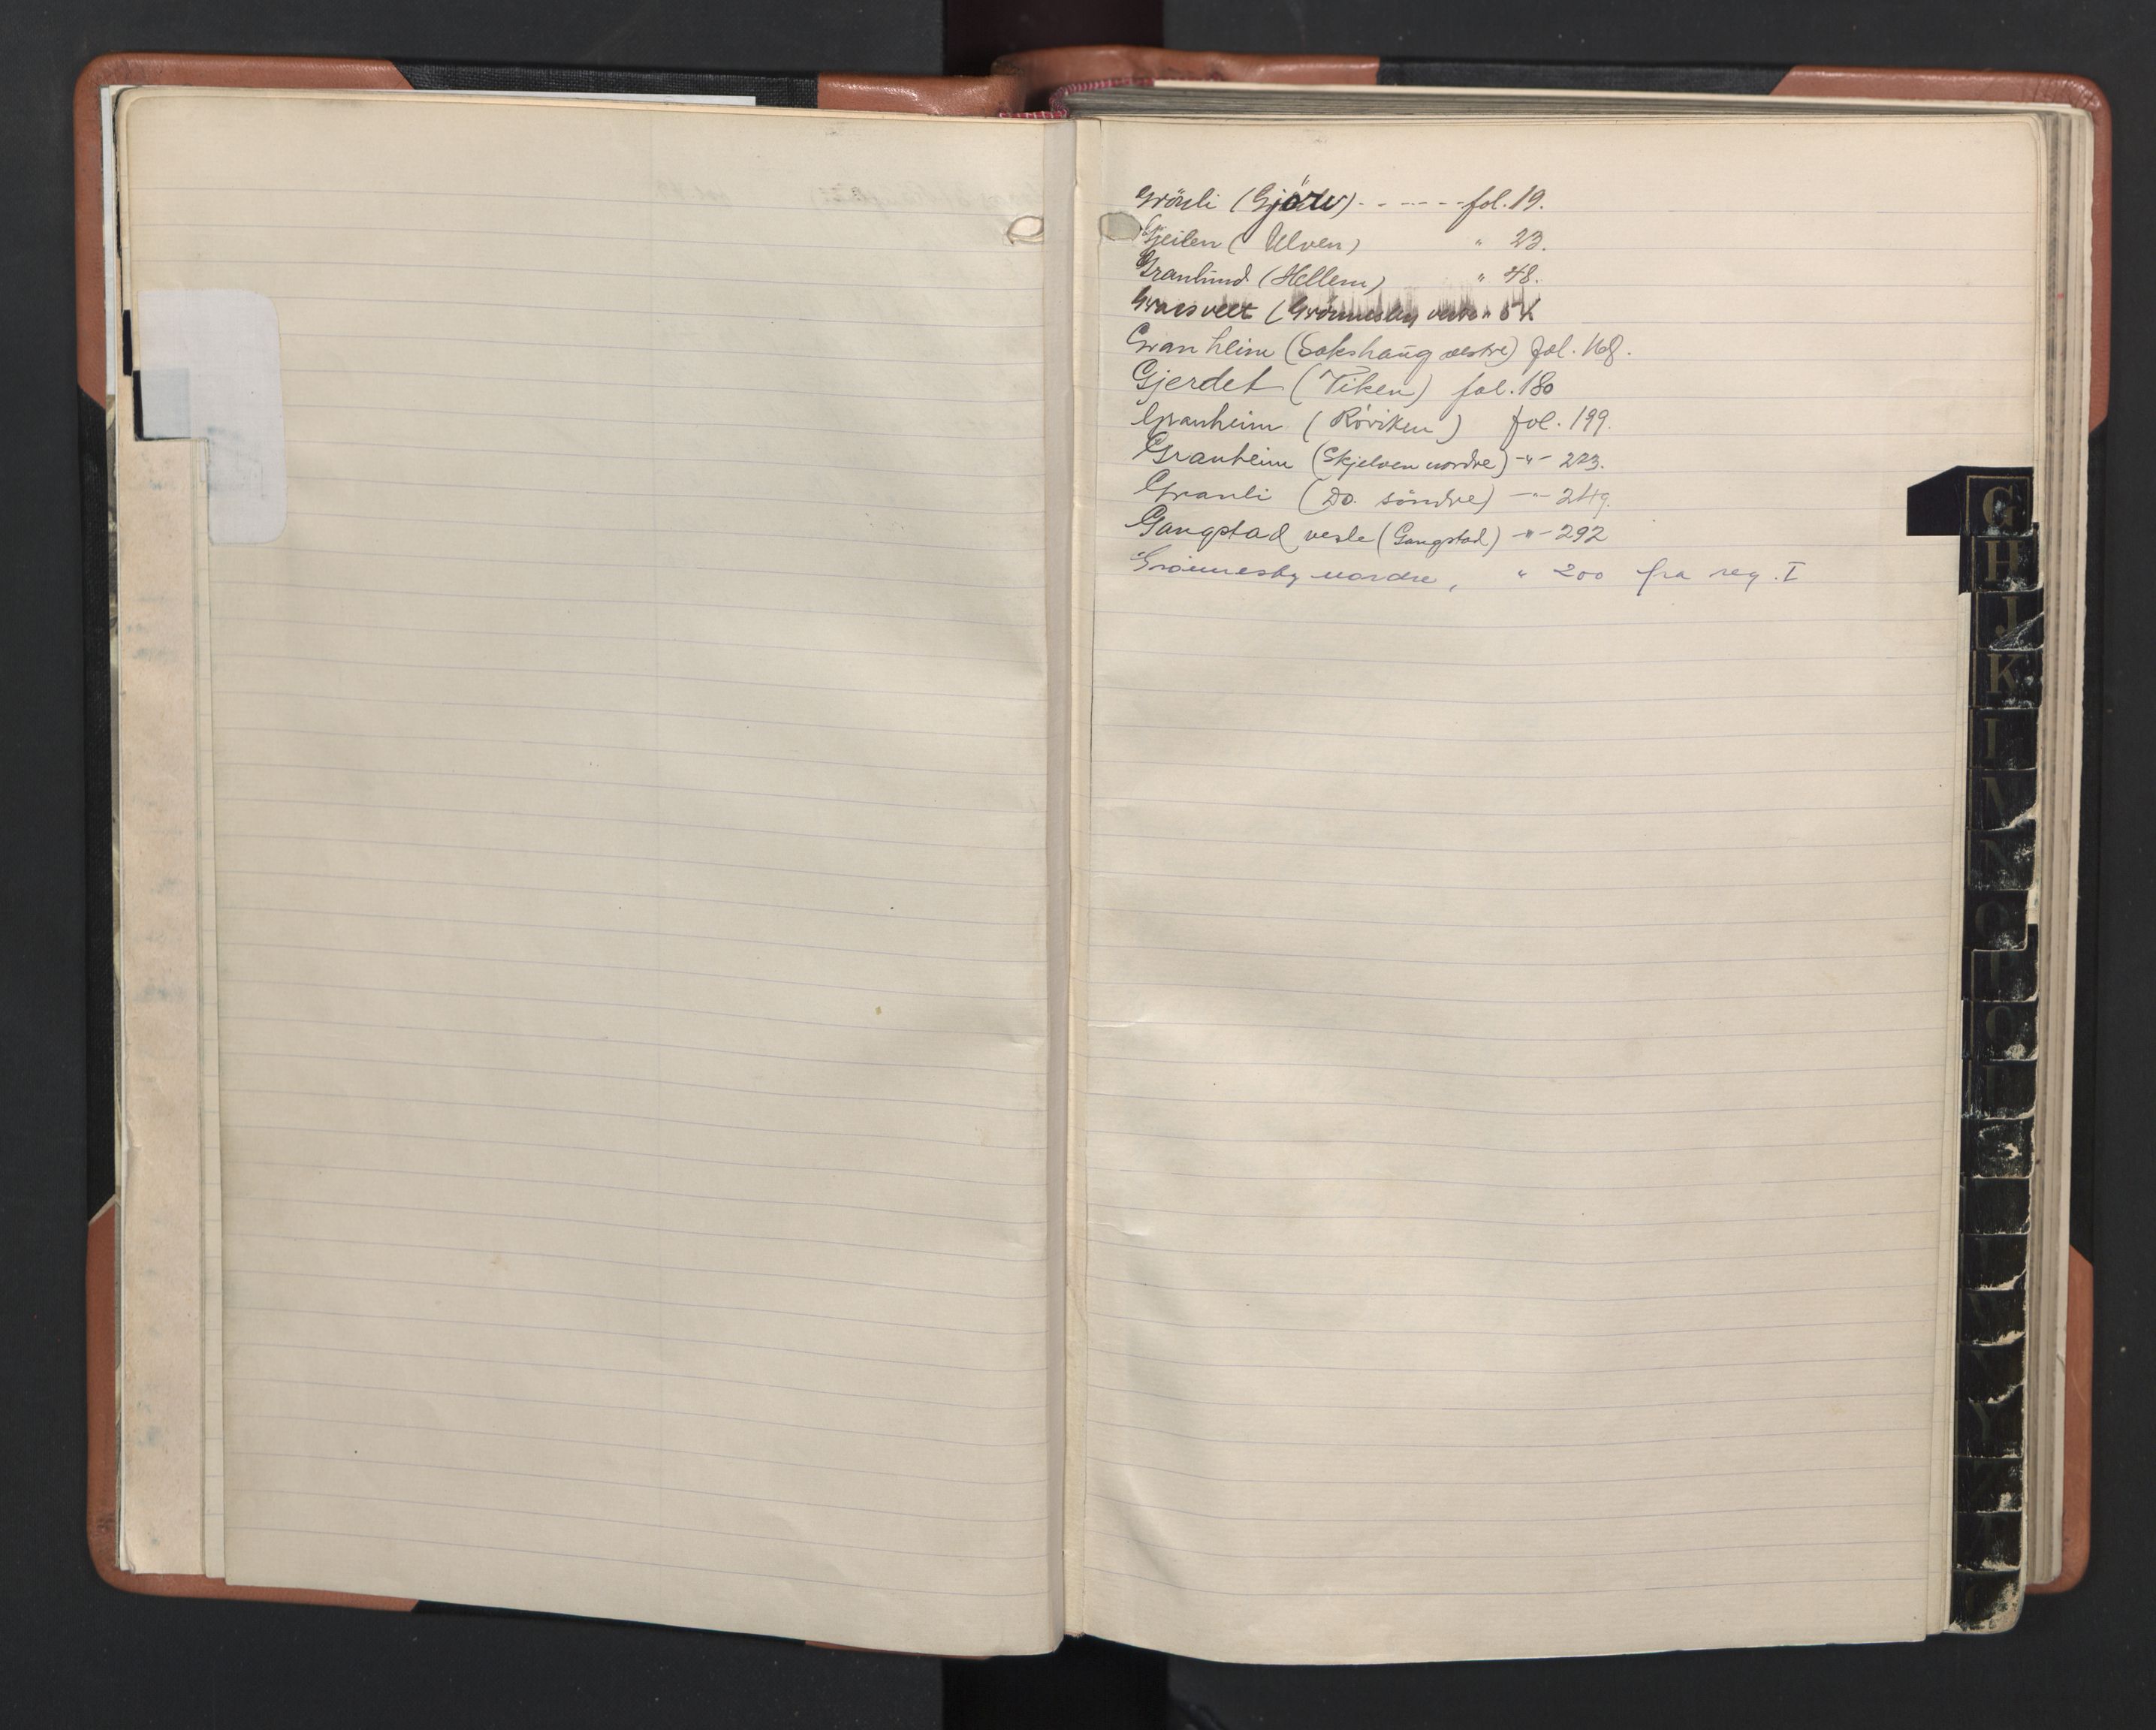 Grönli (Gjörv) - - - - - - fol. 19.
Gjeilen (Ulven) " 23.
Granlund (Hellem) " 48.
(Grönnesby "
Granheim (Sakshaug vestre) fol. 168.
Gjerdet (Viken) fol. 180
Granheim (Röviken) fol. 199.
Granheim (Skjelven nordre) -"- 223.
Granli (Do. söndre) -"- 249.
Gangstad vesle (Gangstad) -"- 292
Grönnesby nordre, " 200 fra reg. I
G
H
J
K